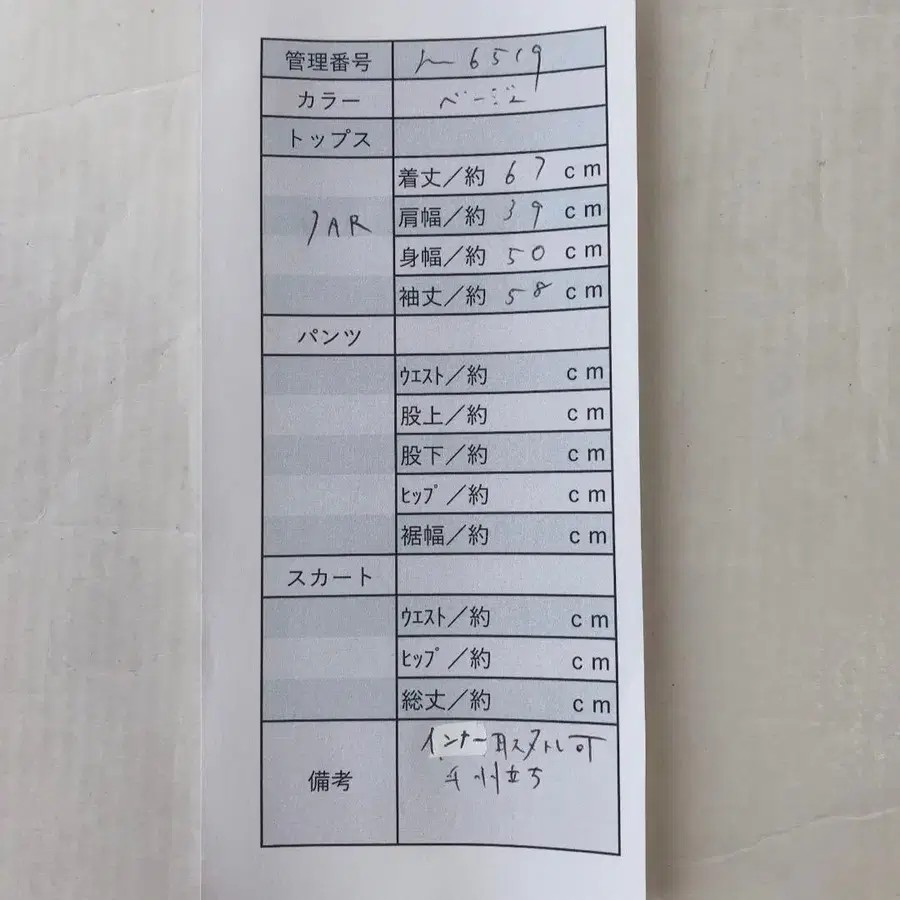 管理番号 6519
カラー ベージュ
トップス
着丈/約 67 cm
JAR 肩幅/約 39 cm
身幅/約 50 cm
袖丈/約 58 cm
パンツ
ウエスト/約 cm
股上/約 cm
股下/約 cm
ヒップ/約 cm
裾幅/約 cm
スカート
ウエスト/約 cm
ヒップ/約 cm
総丈/約 cm
インナー 可
備考 立ち